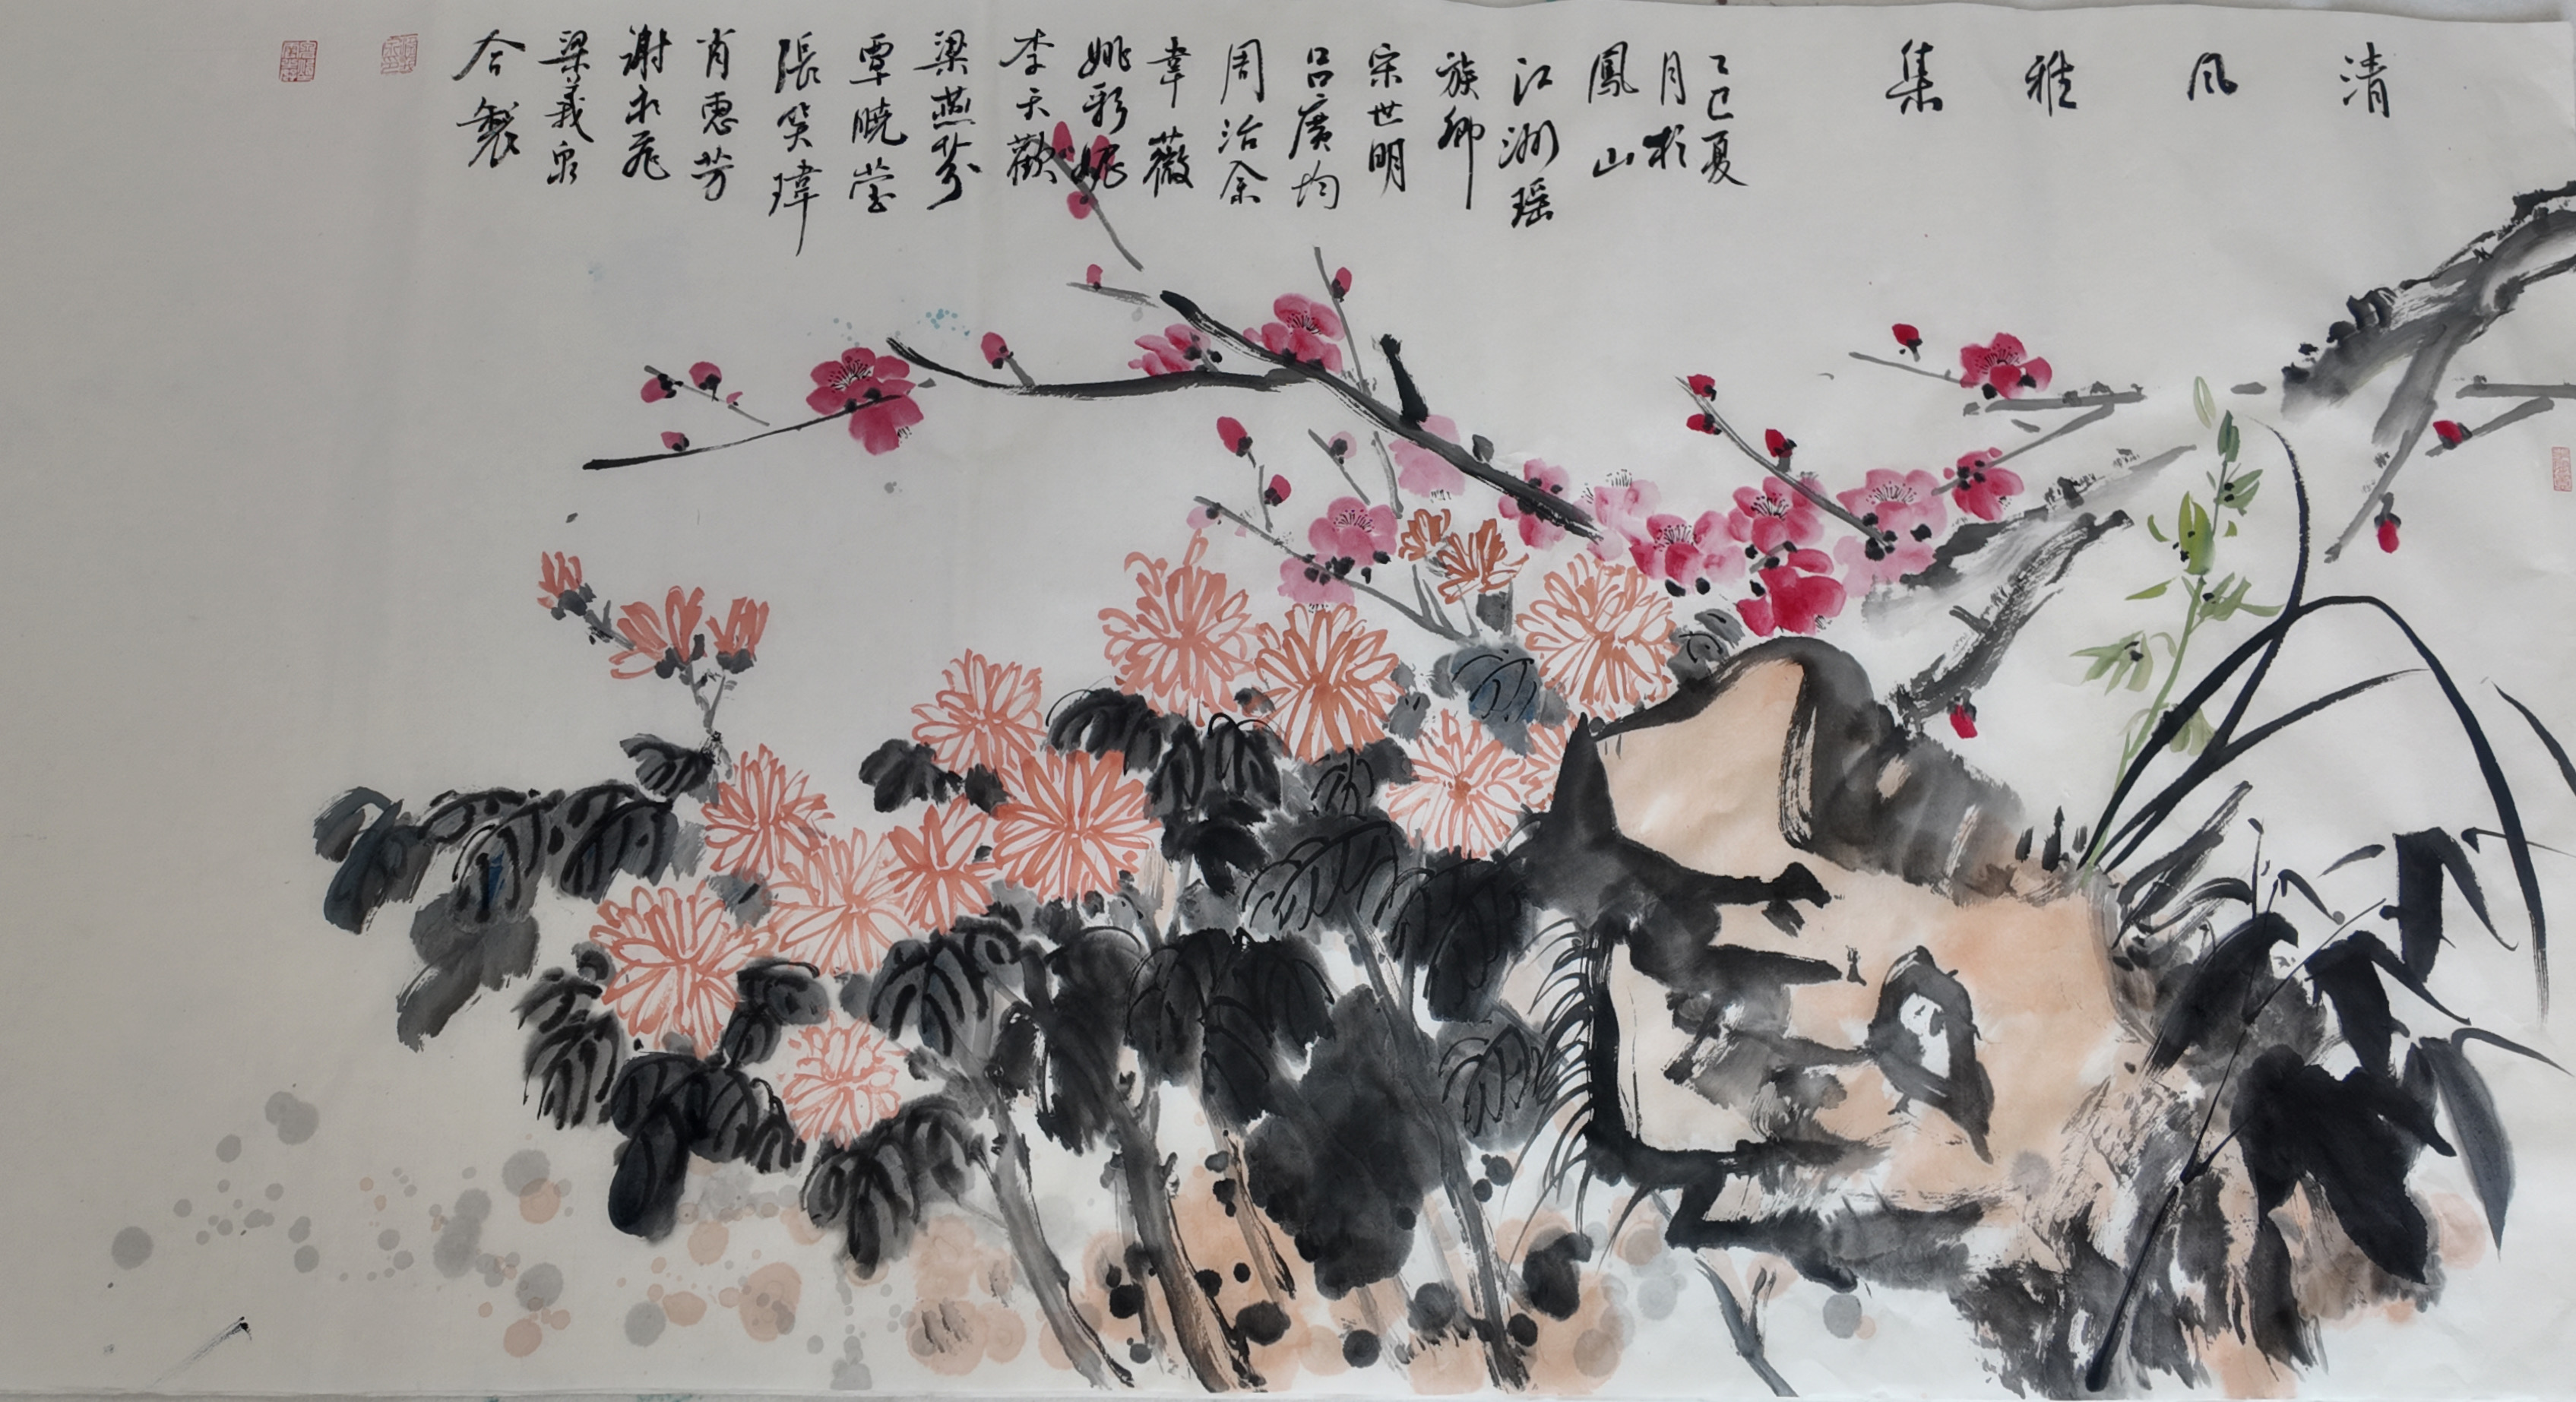 清风雅集
乙巳夏
月於
鳳山
江洲瑶
族鄉
宗世明
吕廣均
周治余
韋薇
姚彩妮
李天歡
梁燕芬
覃曉莹
張笑瑋
肖惠芳
謝永飛
梁義泉
合製